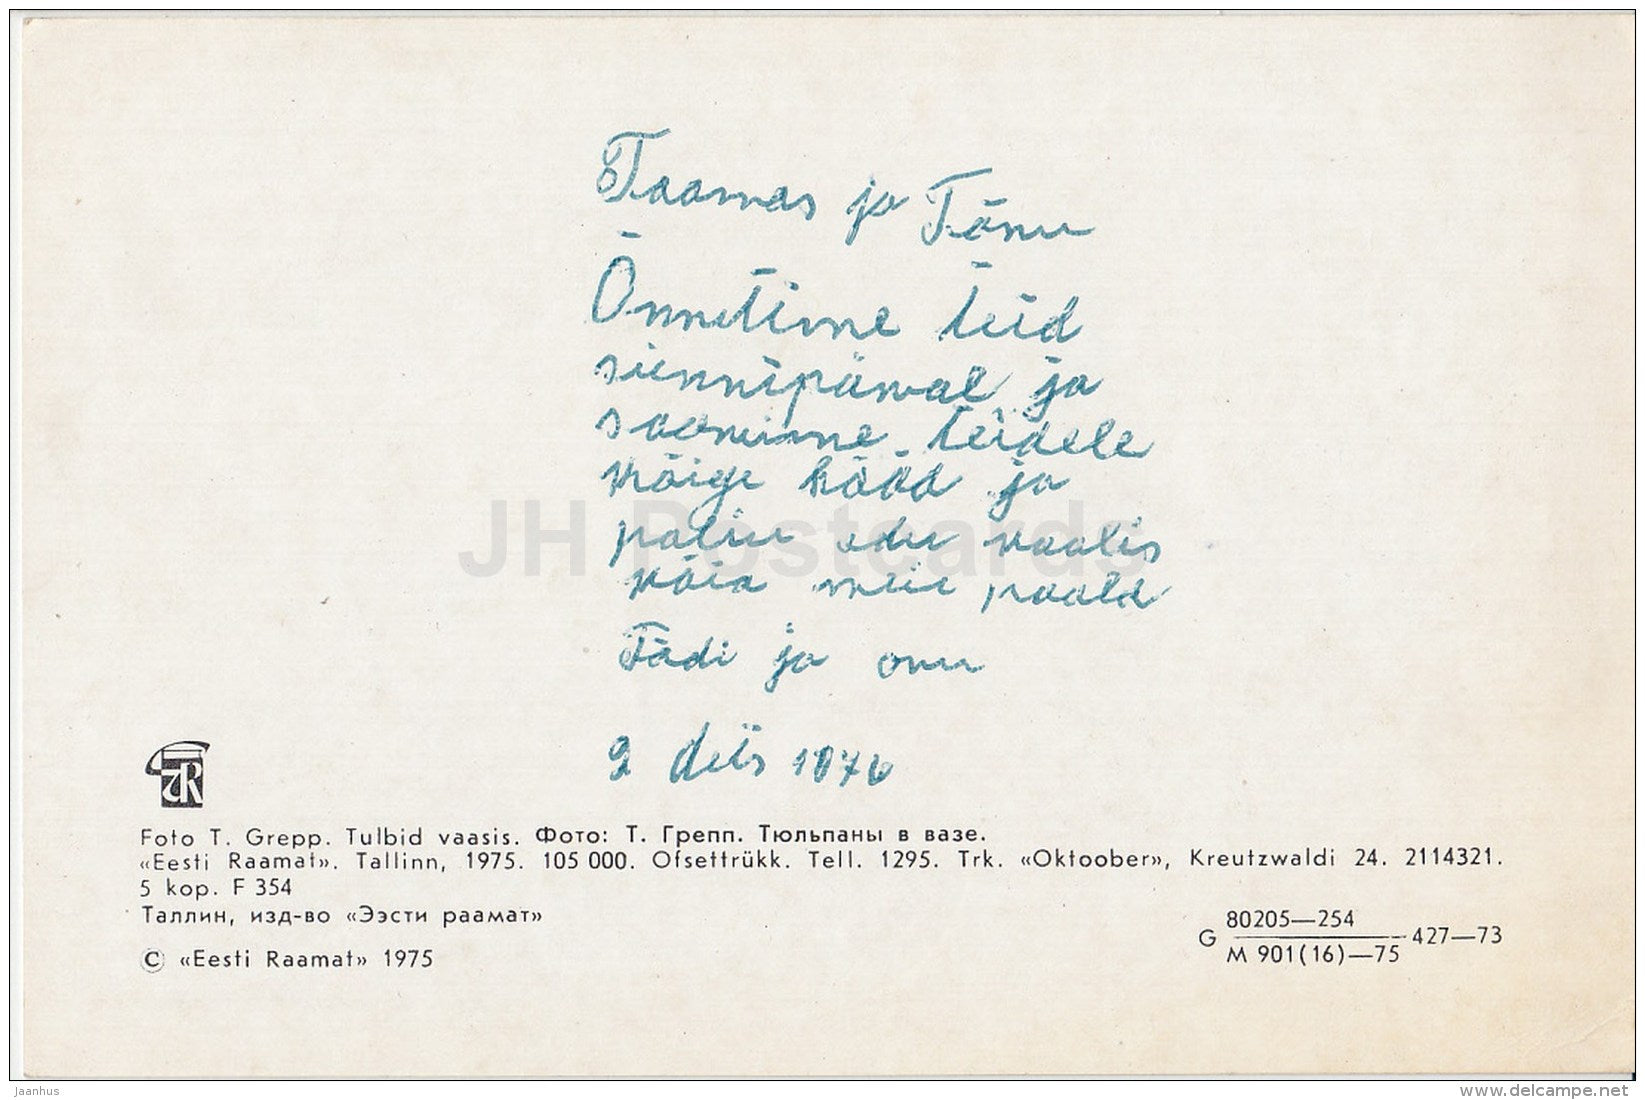 Taamas ja Tõnu
Õnnetime teid
sünnipäwal ja
soowime teidele
kõige hääd ja
paliu edu vaalis
kõia meie poold
Tädi ja onu
2 dets 1976
JH Postcards
Foto T. Grepp. Tulbid vaasis. Фото: Т. Грепп. Тюльпаны в вазе.
«Eesti Raamat». Tallinn, 1975. 105 000. Ofsettrükk. Tell. 1295. Trk. «Oktoober», Kreutzwaldi 24. 2114321.
5 kop. F 354
Таллин, изд-во «Ээсти раамат»
© «Eesti Raamat» 1975
G 80205—254
M 901(16)—75 427—73
jaanhus
www.delcampe.net